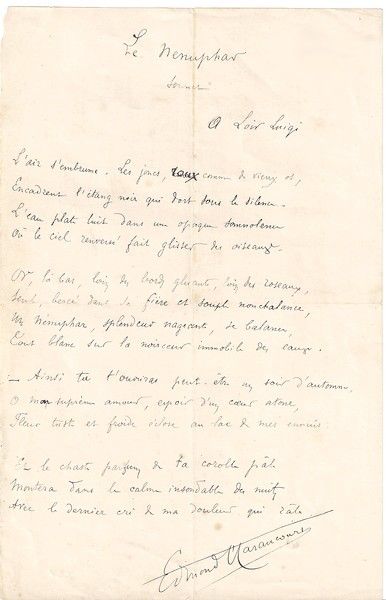 Le Nénuphar
Sonnet
A Loïs Luigi
L'air s'embrume. Les joncs, roux comme de vieux os,
Encadrent l'étang noir qui dort sous le silence.
L'eau plate luit dans une opaque somnolence
Où le ciel renversé fait glisser des oiseaux.
Or, là bas, loin des bords gluants, loin des roseaux,
Seul, bercé dans sa fière et souple nonchalance,
Un nénuphar, splendeur nageante, se balance,
Tout blanc sur la noirceur immobile des eaux.
— Ainsi tu t'ouvriras peut-être un soir d'automne,
O mon suprême amour, espoir d'un cœur atone,
Fleur triste et froide éclose au lac de mes ennuis.
Et le chaste parfum de ta corolle pâle
Montera dans le calme insondable des nuits
Avec le dernier cri de ma douleur qui râle.
Edmond Haraucourt